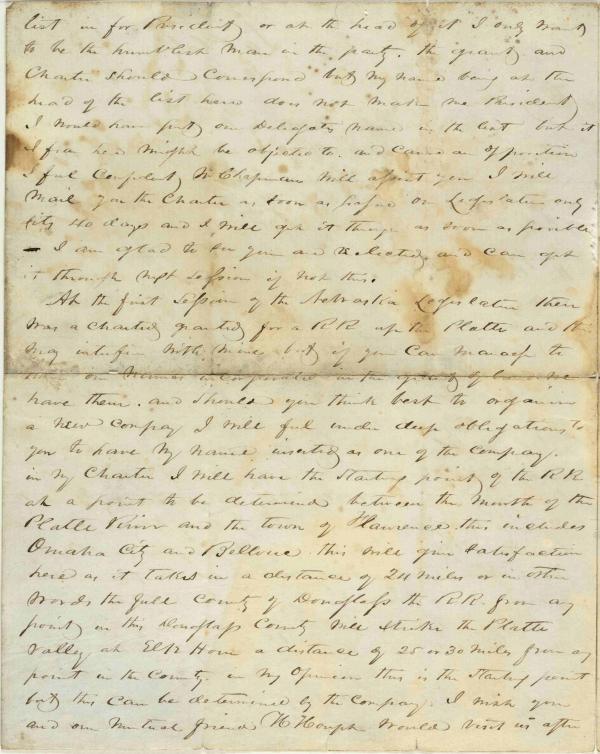 list in for President or at the head of it I only want
to be the humblest man in the party. the grant and
Charter should Correspond but my name being at the
head of the list here does not make me President
I would have put our Delegates name in the list but it
I fear here might be objected to. and cause an opposition
I ful Confident Mr Chapman will assist you I will
Mail you the Charter as soon as passed our Legislature only
sits 40 days and I will get it through as soon as possible
– I am glad to see you are reelected and can get
it through next session if not this.
At the first session of the Nebraska Legislature there
was a charted granted for a RR up the Platte and this
may interfere with mine but if you can manage to
our names incorporated in the grant
have them. and should you think best to organise
a new Company I will ful under deep obligations to
you to have my name inserted as one of the Company.
in my Charter I will have the starting point of the RR
at a point to be determined between the mouth of the
Platte River and the town of Florence. this includes
Omaha City and Bellvue. this will give satisfaction
here as it takes in a distance of 24 miles or in other
words the full County of Douglass the RR. from any
point in this Douglass County will strike the Platte
valley at Elk Horn a distance of 25 or 30 miles from any
point in the County. in my Opinion this is the starting point
but this can be determined by the Company. I wish you
and our mutual friend would visit us after